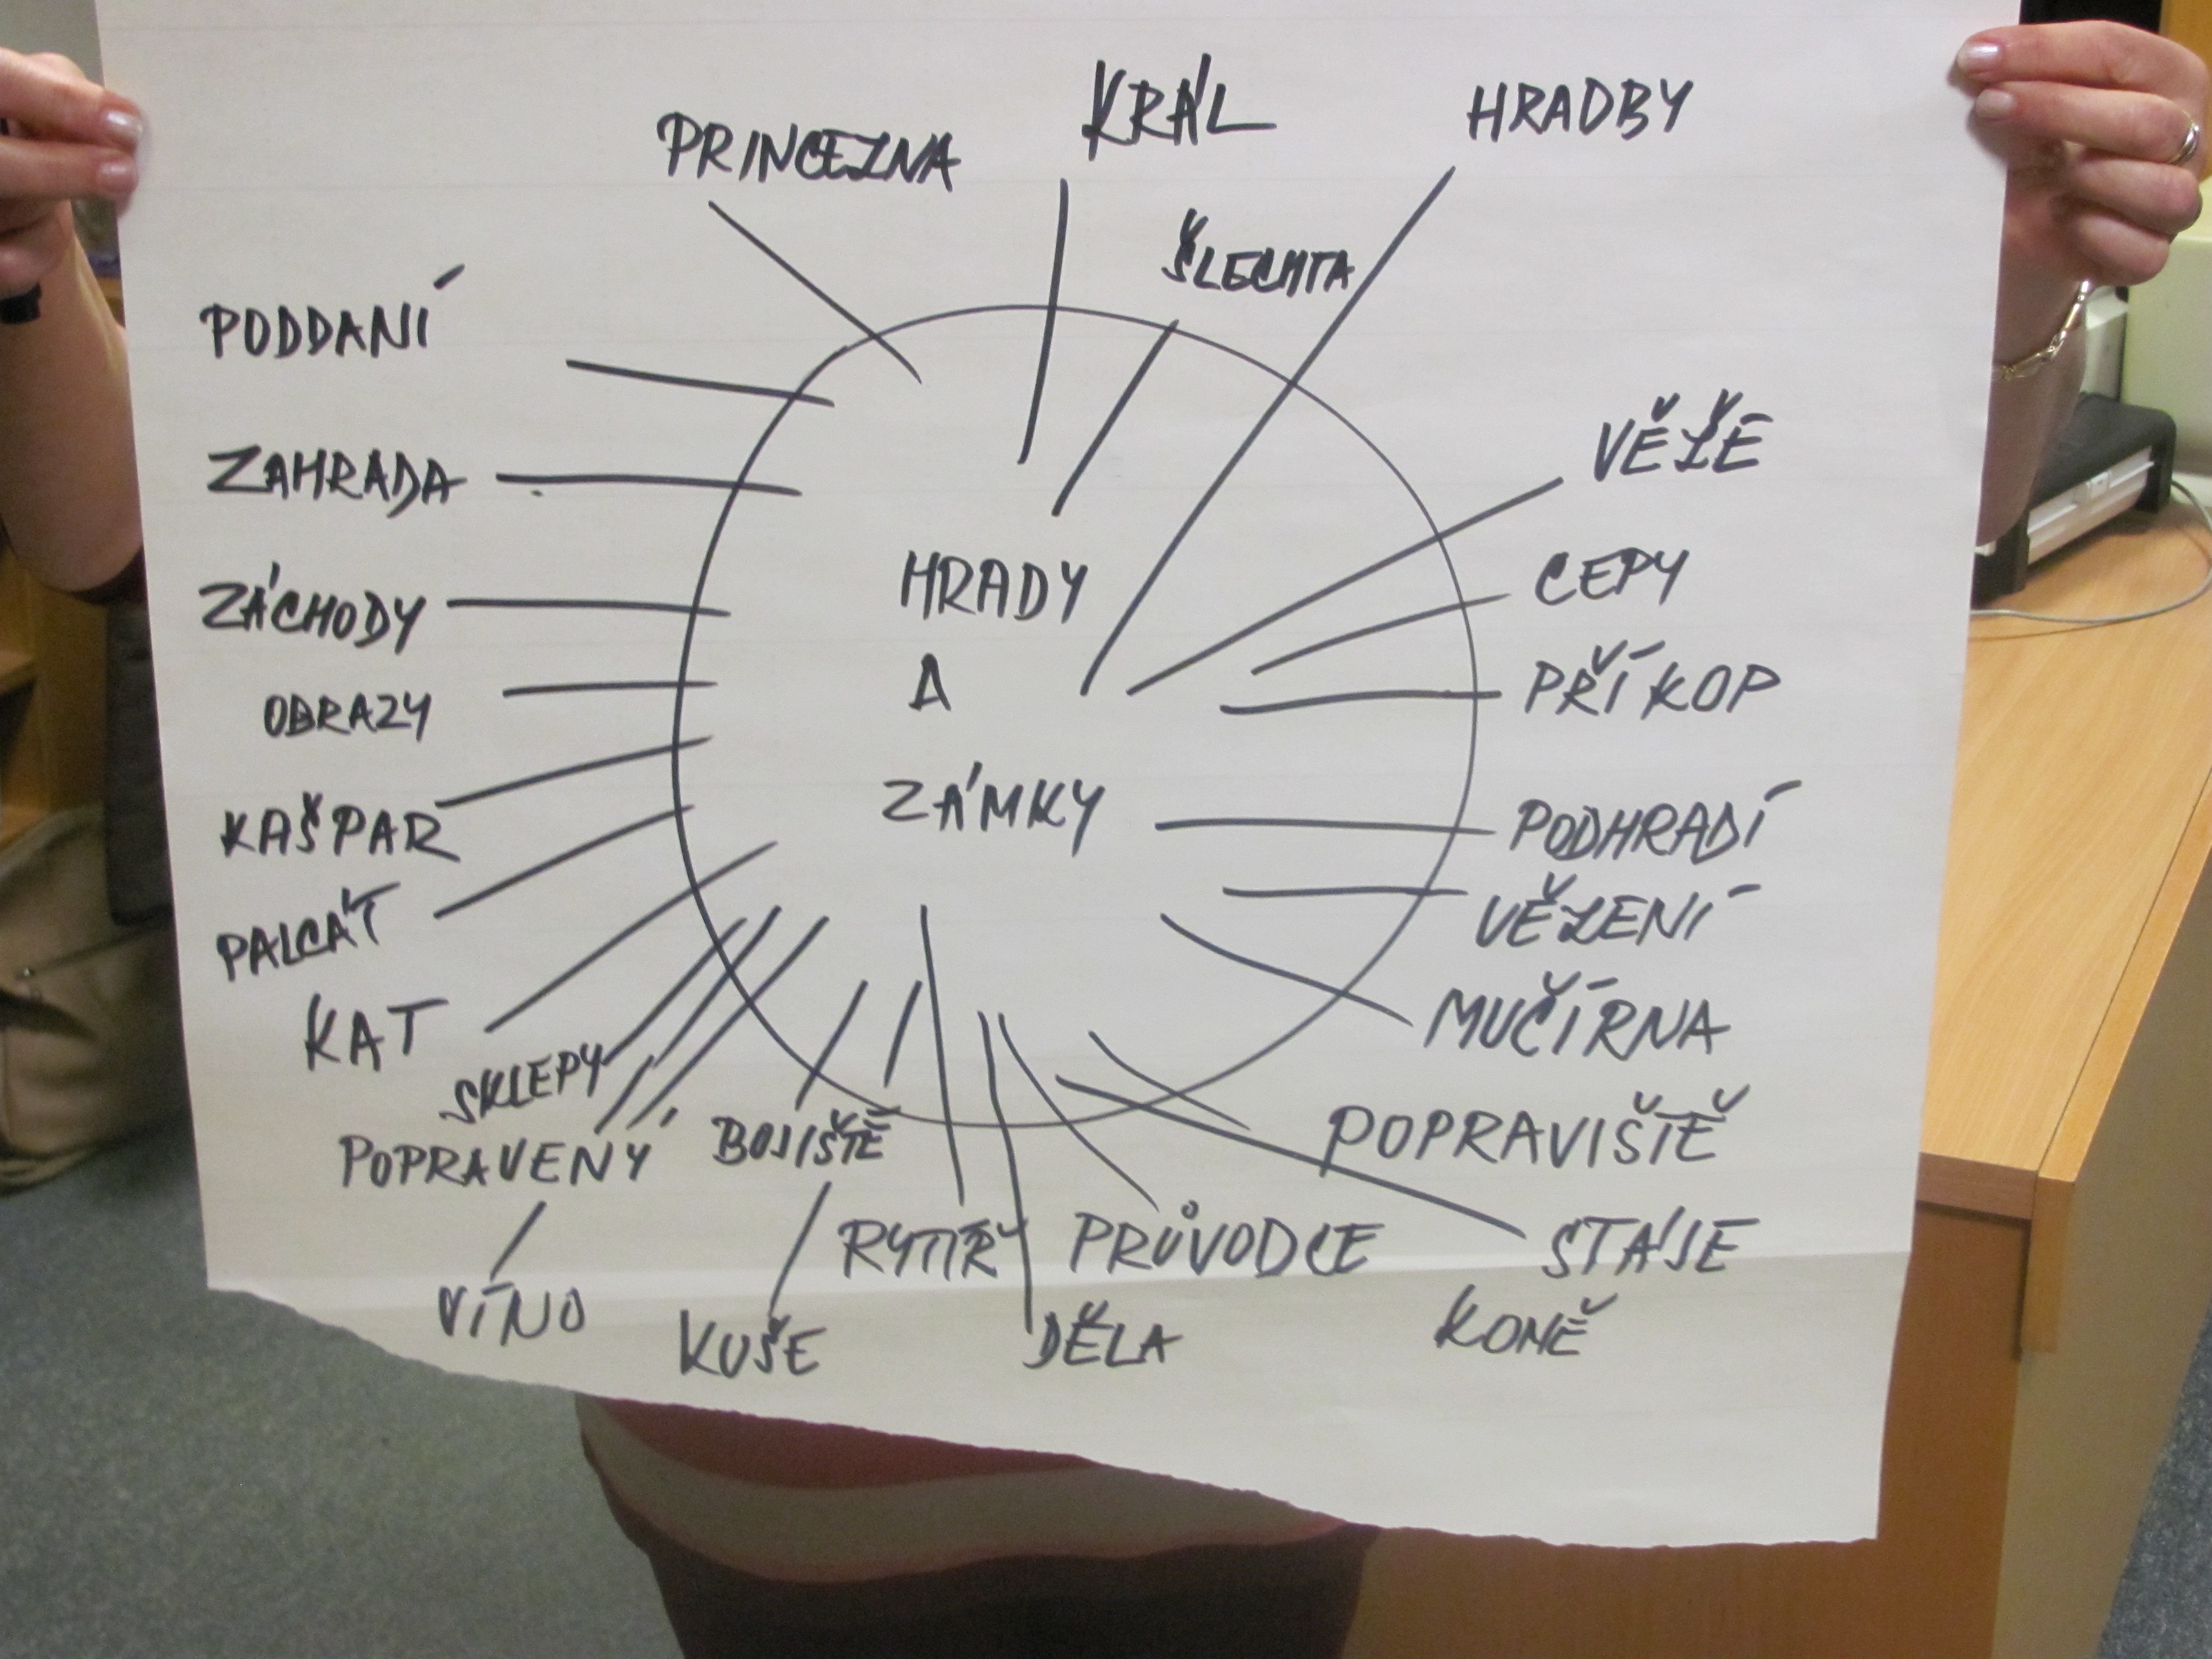 PRINCEZNA
KRÁL
HRADBY
ŠLECHTA
VĚŽE
CEPY
PŘÍKOP
PODHRADÍ
VĚZENÍ
MUČÍRNA
POPRAVIŠTĚ
STÁJE
KONĚ
PRŮVODCE
DĚLA
RYTÍŘ
KUŠE
BOJIŠTĚ
VÍNO
POPRAVENÝ
SKLEPY
KAT
PALCÁT
KAŠPAR
OBRAZY
ZÁCHODY
ZAHRADA
PODDANÍ
HRADY
A
ZÁMKY